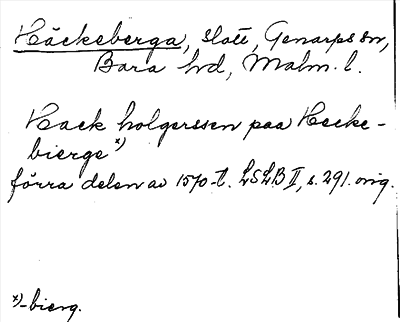 Häckeberga, slott, Genarps sn,
Bara hd, Malm. l.
Hack holgerssen paa Hecke-
bierge x)
förra delen av 1570-t. LSLB II, s. 291. orig.
x) -bierg.